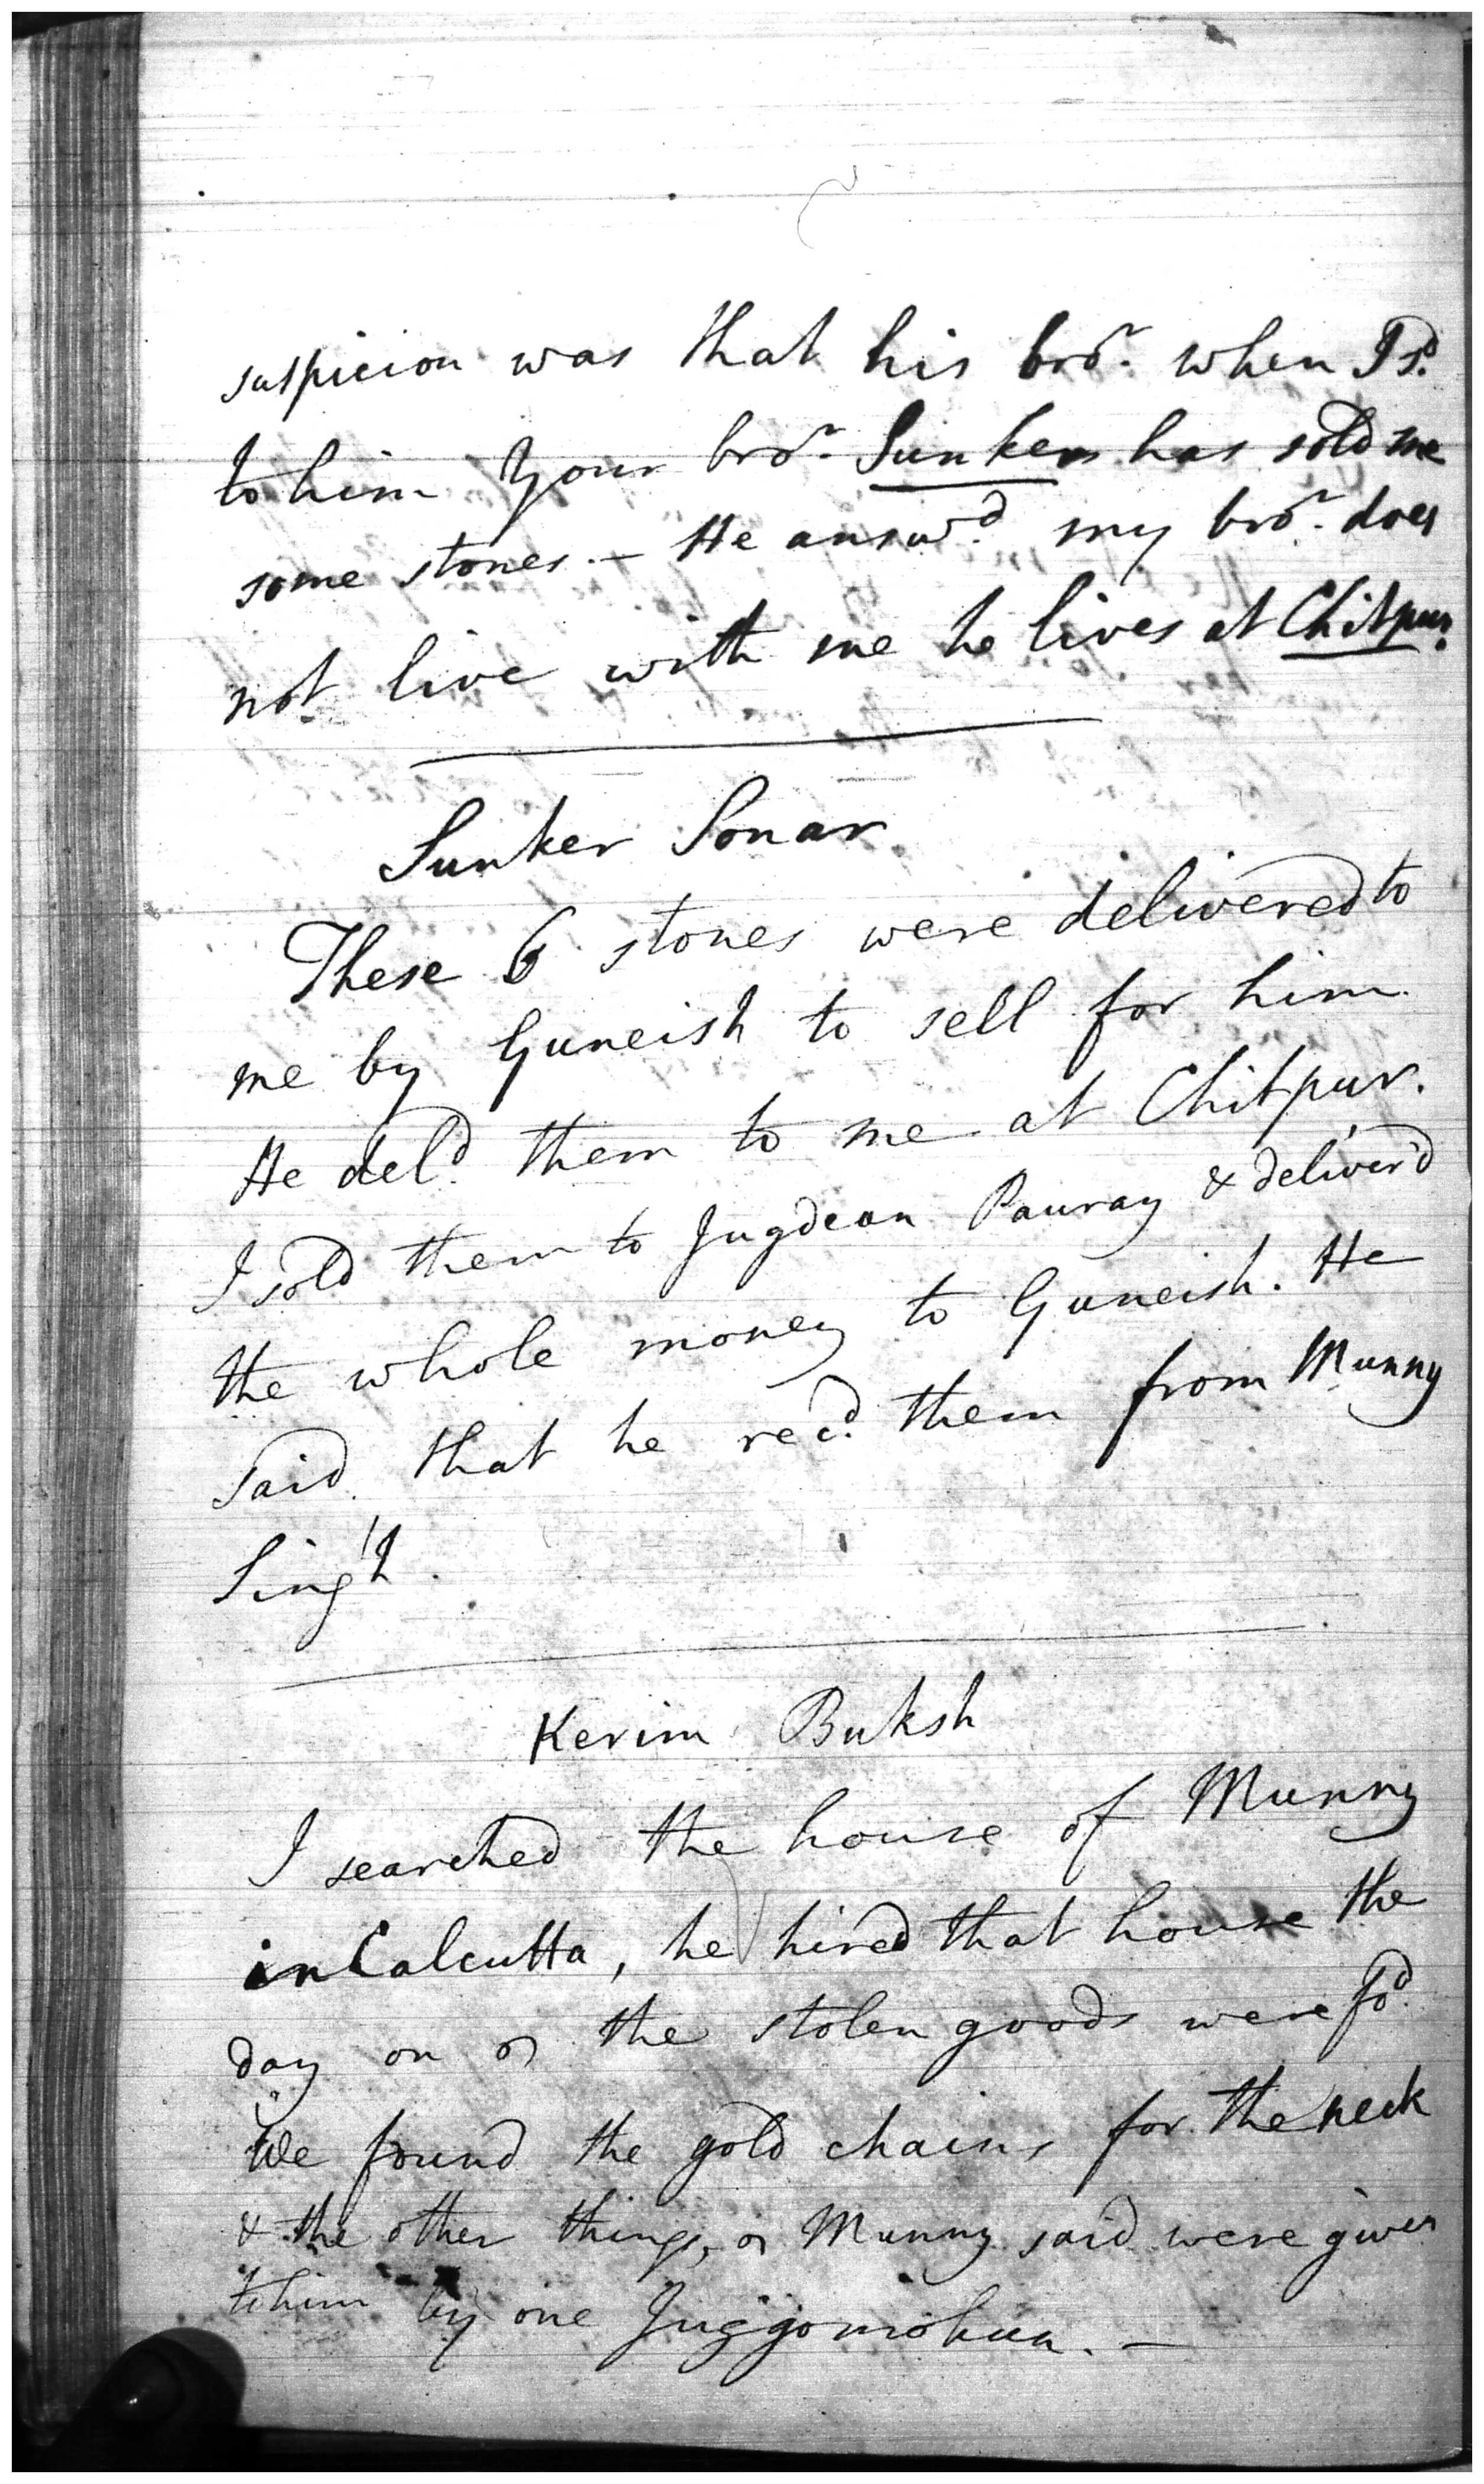 suspicion was that his bror. when I sd.
to him Your bror. Sunker has sold me
some stones. — He answd. my bror. does
not live with me he lives at Chitpur.
Sunker Sonar
These 6 stones were delivered to
me by Guneish to sell for him
He deld. them to me at Chitpur.
I sold them to Jugdeon Pauray & deliver'd
the whole money to Guneish. He
said that he recd. them from Munny
Sing'h.
Kerim Buksh
I searched the house of Munny
in Calcutta, he hired that house the
day on the stolen goods were fd.
We found the gold chains for the neck
& the other things, Munny said were given
to him by one Juggomohun. —